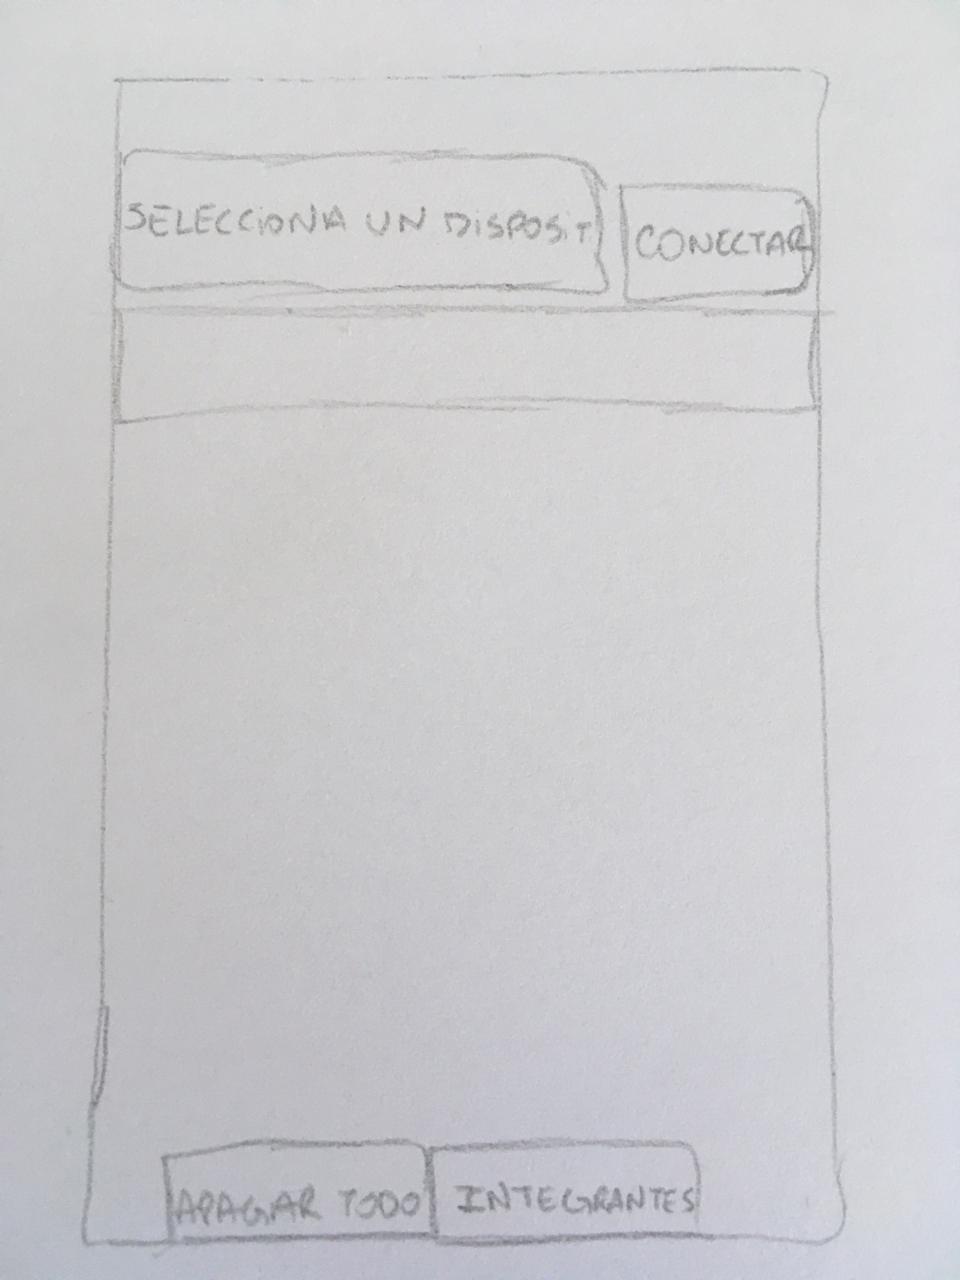 SELECCIONA UN DISPOSIT
CONECTAR
APAGAR TODO
INTEGRANTES